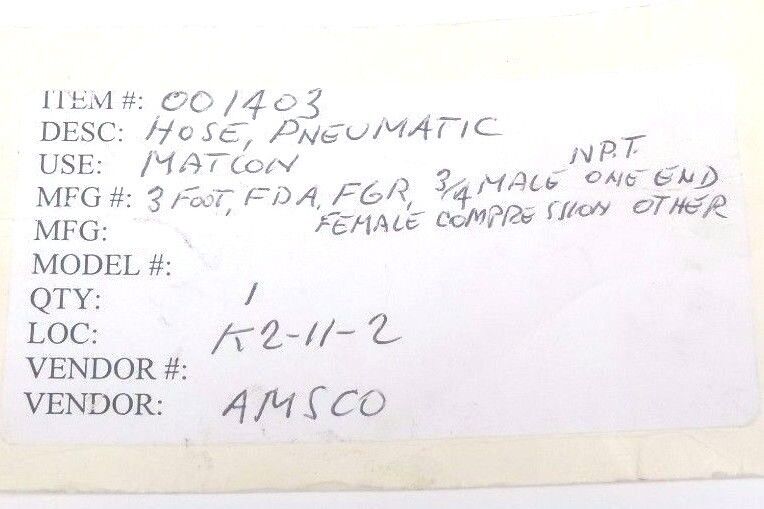 ITEM #: 001403
DESC: HOSE, PNEUMATIC
USE: MATCON
MFG #: 3 FOOT, FDA, FGR, 3/4 MALE N.P.T. ONE END
FEMALE COMPRESSION OTHER
MFG:
MODEL #:
QTY: 1
LOC: K2-11-2
VENDOR #:
VENDOR: AMSCO